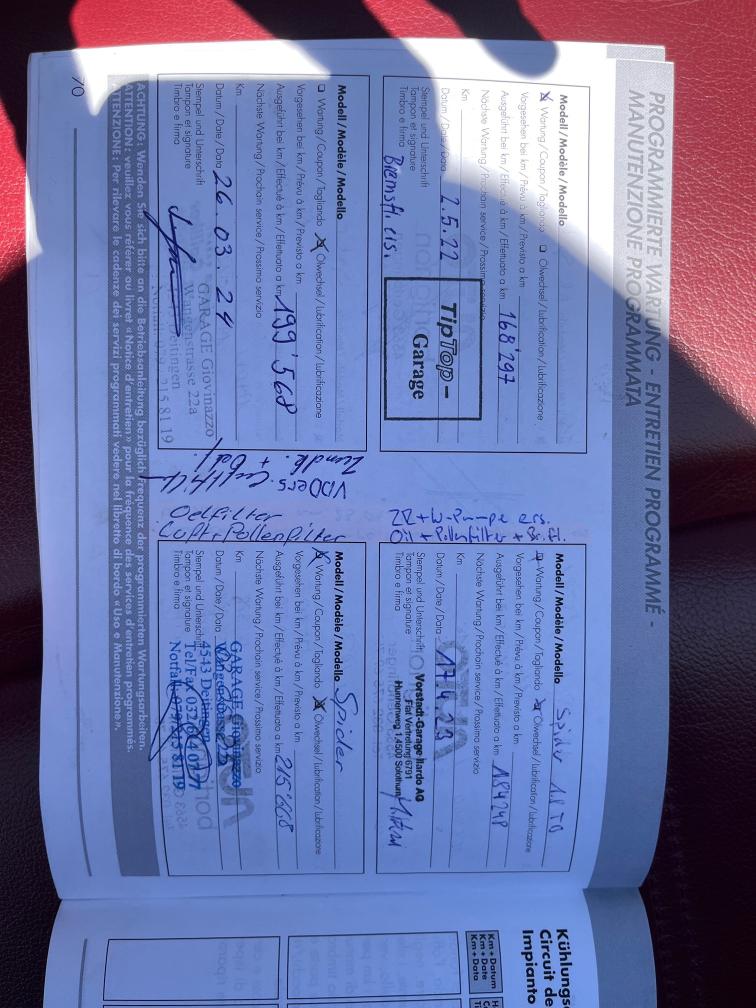 PROGRAMMIERTE WARTUNG - ENTRETIEN PROGRAMMÉ -
MANUTENZIONE PROGRAMMATA
Modell / Modèle / Modello
Wartung / Coupon / Tagliando Ölwechsel / Lubrification / Lubrificazione
Vorgesehen bei km / Prévu à km / Previsto a km
Ausgeführt bei km / Effectué à km / Effettuato a km 168'297
Nächste Wartung / Prochain service / Prossimo servizio
Km
Datum / Date / Data 2.5.22
Stempel und Unterschrift
Tampon et signature
Timbro e firma
TipTop-
Garage
Bremsfl. ers.
ZR+W-Pumpe ers.
Öil + Pollenfilter + Br.fl.
Modell / Modèle / Modello Spider 1.8 TS
Wartung / Coupon / Tagliando Ölwechsel / Lubrification / Lubrificazione
Vorgesehen bei km / Prévu à km / Previsto a km
Ausgeführt bei km / Effectué à km / Effettuato a km 184248
Nächste Wartung / Prochain service / Prossimo servizio
Km
Datum / Date / Data 17.4.23
Stempel und Unterschrift
Tampon et signature
Timbro e firma
Vorstadt-Garage Ilardo AG
Fiat Vertretung 6791
Hunnenweg 1 4500 Solothurn
Modell / Modèle / Modello
Wartung / Coupon / Tagliando Ölwechsel / Lubrification / Lubrificazione
Vorgesehen bei km / Prévu à km / Previsto a km
Ausgeführt bei km / Effectué à km / Effettuato a km 199'568
Nächste Wartung / Prochain service / Prossimo servizio
Km
Datum / Date / Data 26.03.24
Stempel und Unterschrift
Tampon et signature
Timbro e firma
GARAGE Giovinazzo
Wangenstrasse 22a
215 81 19
Zündk. + Oel
VDDers.
Oelfilter
Luft+Pollenfilter
Modell / Modèle / Modello Spider
Wartung / Coupon / Tagliando Ölwechsel / Lubrification / Lubrificazione
Vorgesehen bei km / Prévu à km / Previsto a km
Ausgeführt bei km / Effectué à km / Effettuato a km 215'668
Nächste Wartung / Prochain service / Prossimo servizio
Km
Datum / Date / Data
Stempel und Unterschrift
Tampon et signature
Timbro e firma
GARAGE Giovinazzo
4543 Deitingen
Tel/Fax 032/614 07 77
Notfall 079/215 81 19
ACHTUNG: Wenden Sie sich bitte an die Betriebsanleitung bezüglich Frequenz der programmierten Wartungsarbeiten.
ATTENTION: veuillez vous référer au livret «Notice d'entretien» pour la fréquence des services d'entretien programmés.
ATTENZIONE: Per rilevare le cadenze dei servizi programmati vedere nel libretto di bordo «Uso e Manutenzione».
70
Kühlungs
Circuit de
Impianto
Km + Datum
Km + Date
Km + Data